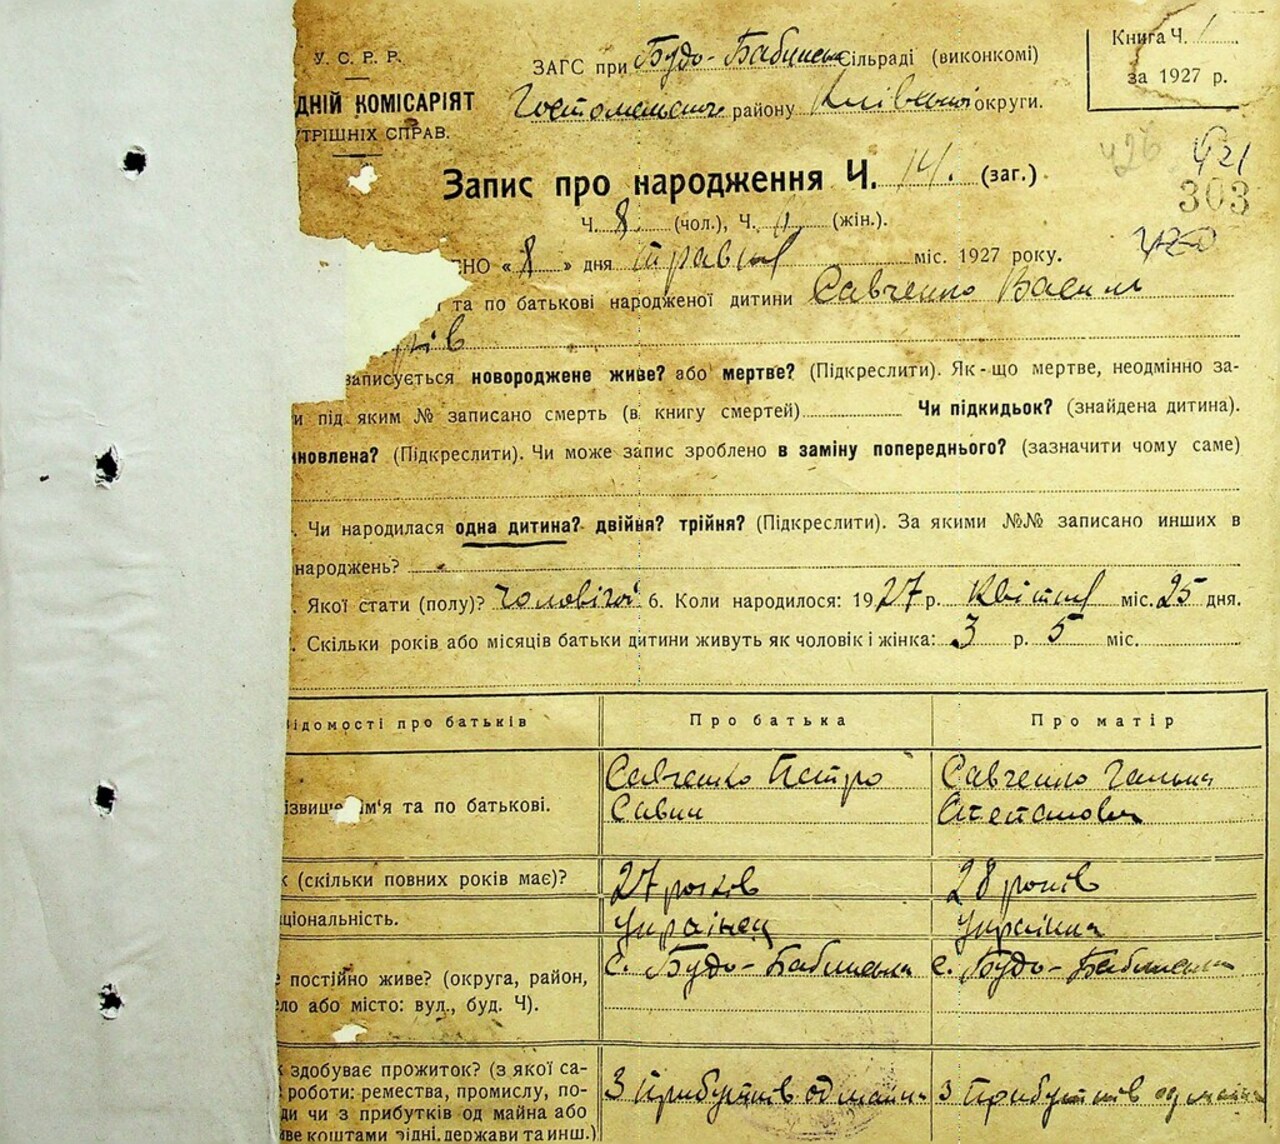 У. С. Р. Р.
ЗАГС при Будо-Бабинській Сільраді (виконкомі)
Книга Ч. 1
ДНІЙ КОМІСАРІЯТ
району Київської округи.
за 1927 р.
ТРІШНІХ СПРАВ.
426 421
Запис про народження Ч. 14. (заг.)
303
Ч. 8 (чол.), Ч. (жін.).
420
ЕНО « 8 » дня травня міс. 1927 року.
та по батькові народженої дитини Савченко Василь
рів
записується новороджене живе? або мертве? (Підкреслити). Як-що мертве, неодмінно за-
и під яким № записано смерть (в книгу смертей) Чи підкидьок? (знайдена дитина).
иновлена? (Підкреслити). Чи може запис зроблено в заміну попереднього? (зазначити чому саме)
. Чи народилася одна дитина? двійня? трійня? (Підкреслити). За якими №№ записано инших в
народжень?
. Якої стати (полу)? чоловічої 6. Коли народилося: 1927 р. Квітня міс. 25 дня.
. Скільки років або місяців батьки дитини живуть як чоловік і жінка: 3 р. 5 міс.
ідомості про батьків Про батька Про матір
Савченко Петро Савченко Галька
ізвище ім'я та по батькові. Савин Степановна
к (скільки повних років має)? 27 років 28 років
ціональність. Українец Українка
с. Будо-Бабинська с. Будо-Бабинська
е постійно живе? (округа, район,
ло або місто: вул., буд. Ч).
к здобуває прожиток? (з якої са-
роботи: ремества, промислу, по- З прибутків од майна З прибутків од майна
ди чи з прибутків од майна або
ве коштами рідні, держави та инш.)